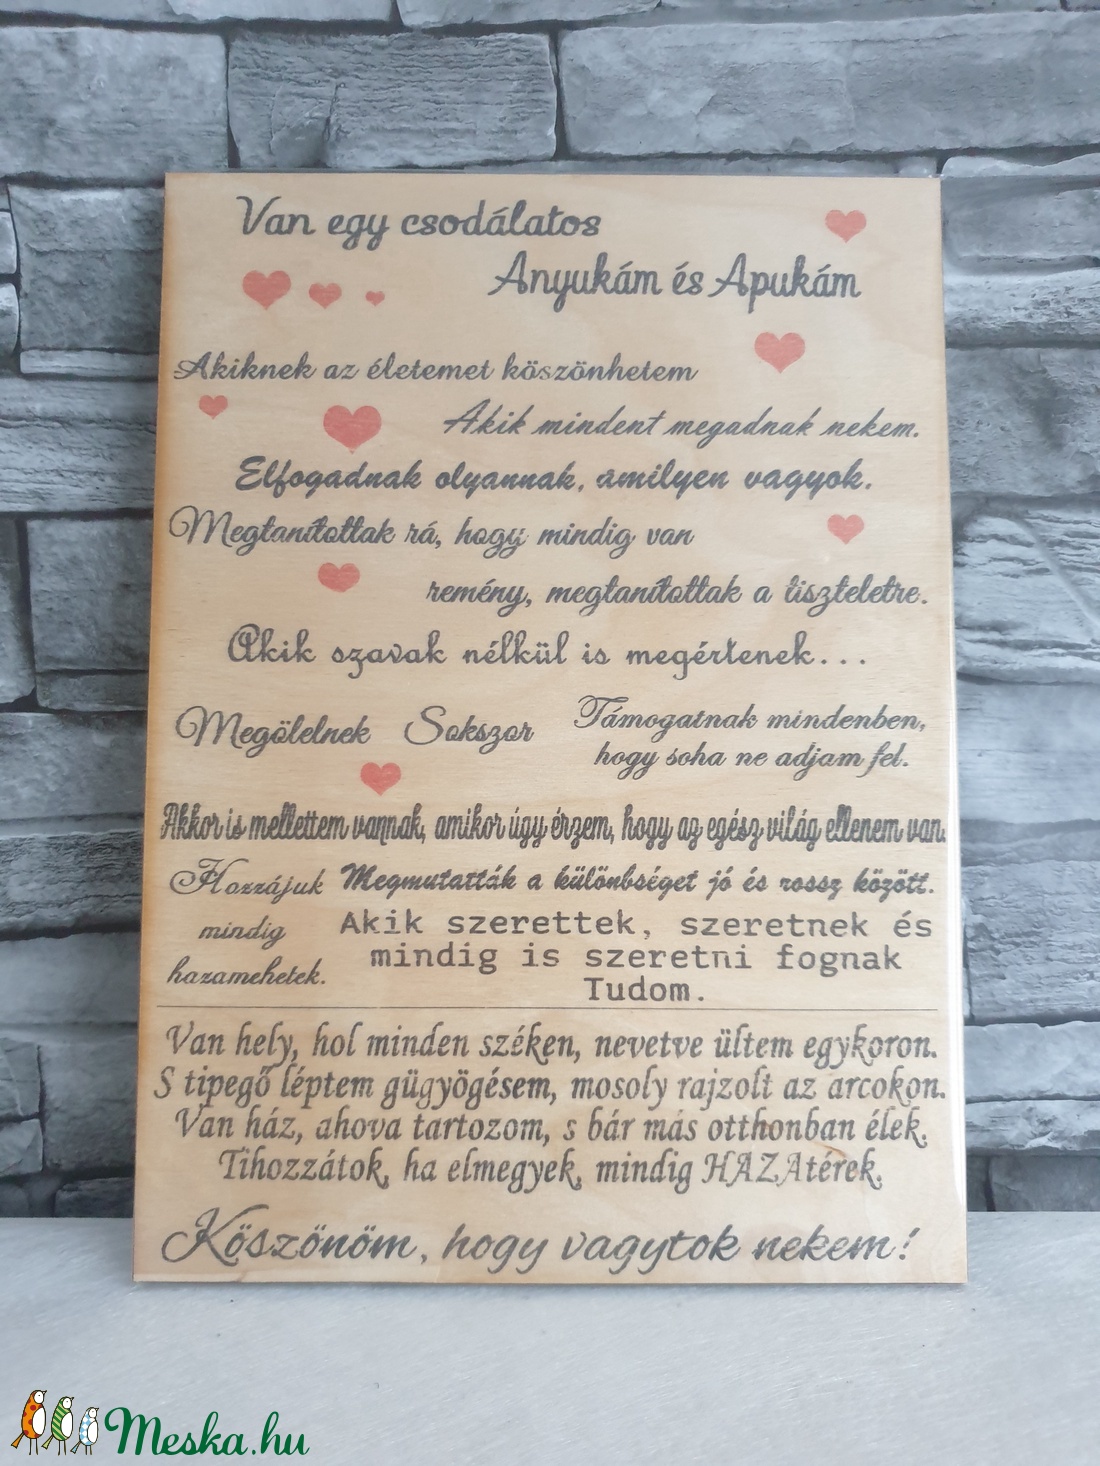 Van egy csodálatos
Anyukám és Apukám
Akiknek az életemet köszönhetem
Akik mindent megadnak nekem.
Elfogadnak olyannak, amilyen vagyok.
Megtanítottak rá, hogy mindig van
remény, megtanítottak a tiszteletre.
Akik szavak nélkül is megértenek...
Megölelnek Sokszor
Támogatnak mindenben,
hogy soha ne adjam fel.
Akkor is mellettem vannak, amikor úgy érzem, hogy az egész világ ellenem van.
Hozzájuk
mindig
hazamehetek.
Megmutatták a különbséget jó és rossz között.
Akik szerettek, szeretnek és
mindig is szeretni fognak
Tudom.
Van hely, hol minden széken, nevetve ültem egykoron.
S tipegő léptem gügyögésem, mosoly rajzolt az arcokon.
Van ház, ahova tartozom, s bár más otthonban élek.
Tihozzátok, ha elmegyek, mindig HAZAtérek.
Köszönöm, hogy vagytok nekem!
Meska.hu